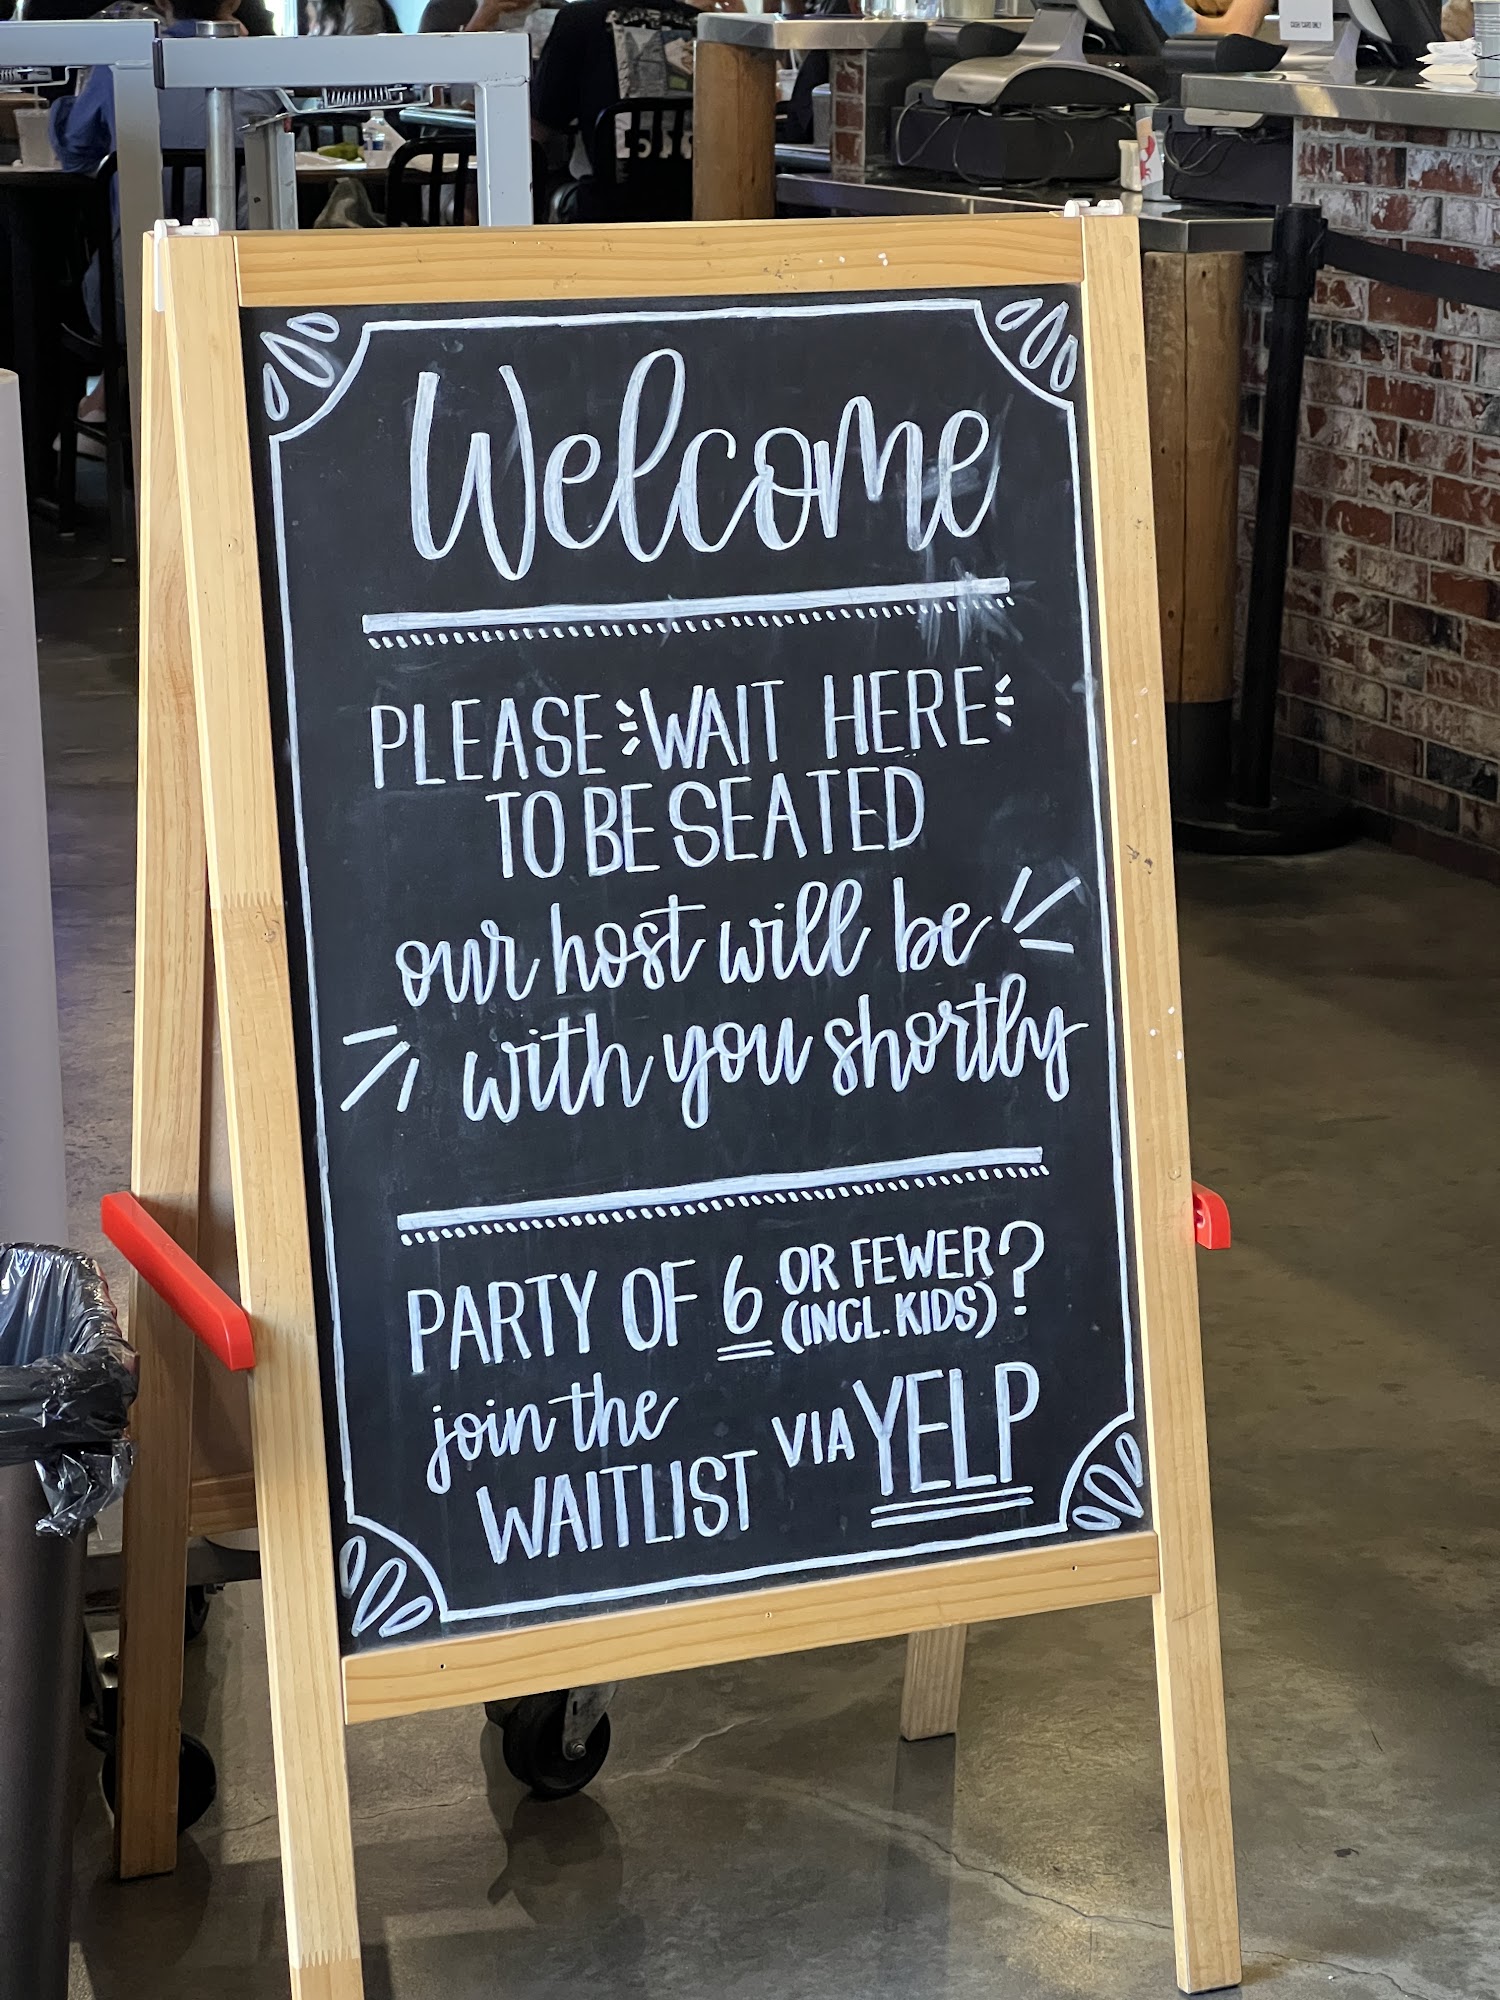 Welcome
PLEASE WAIT HERE
TO BE SEATED
our host will be
with you shortly
PARTY OF 6 OR FEWER (INCL. KIDS)?
join the
WAITLIST VIA YELP